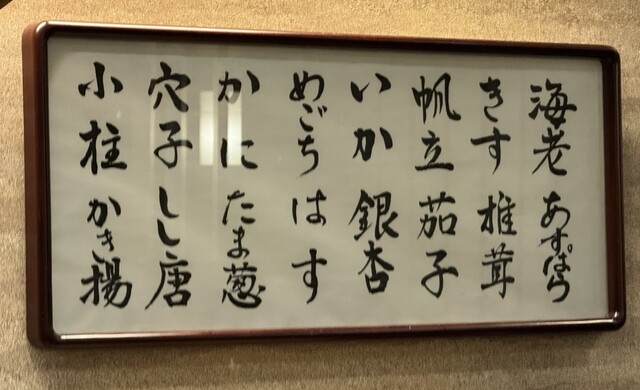 海老 あすぱら
きす 椎茸
帆立 茄子
いか 銀杏
めごち はす
かに たま葱
穴子 しし唐
小柱 かき揚